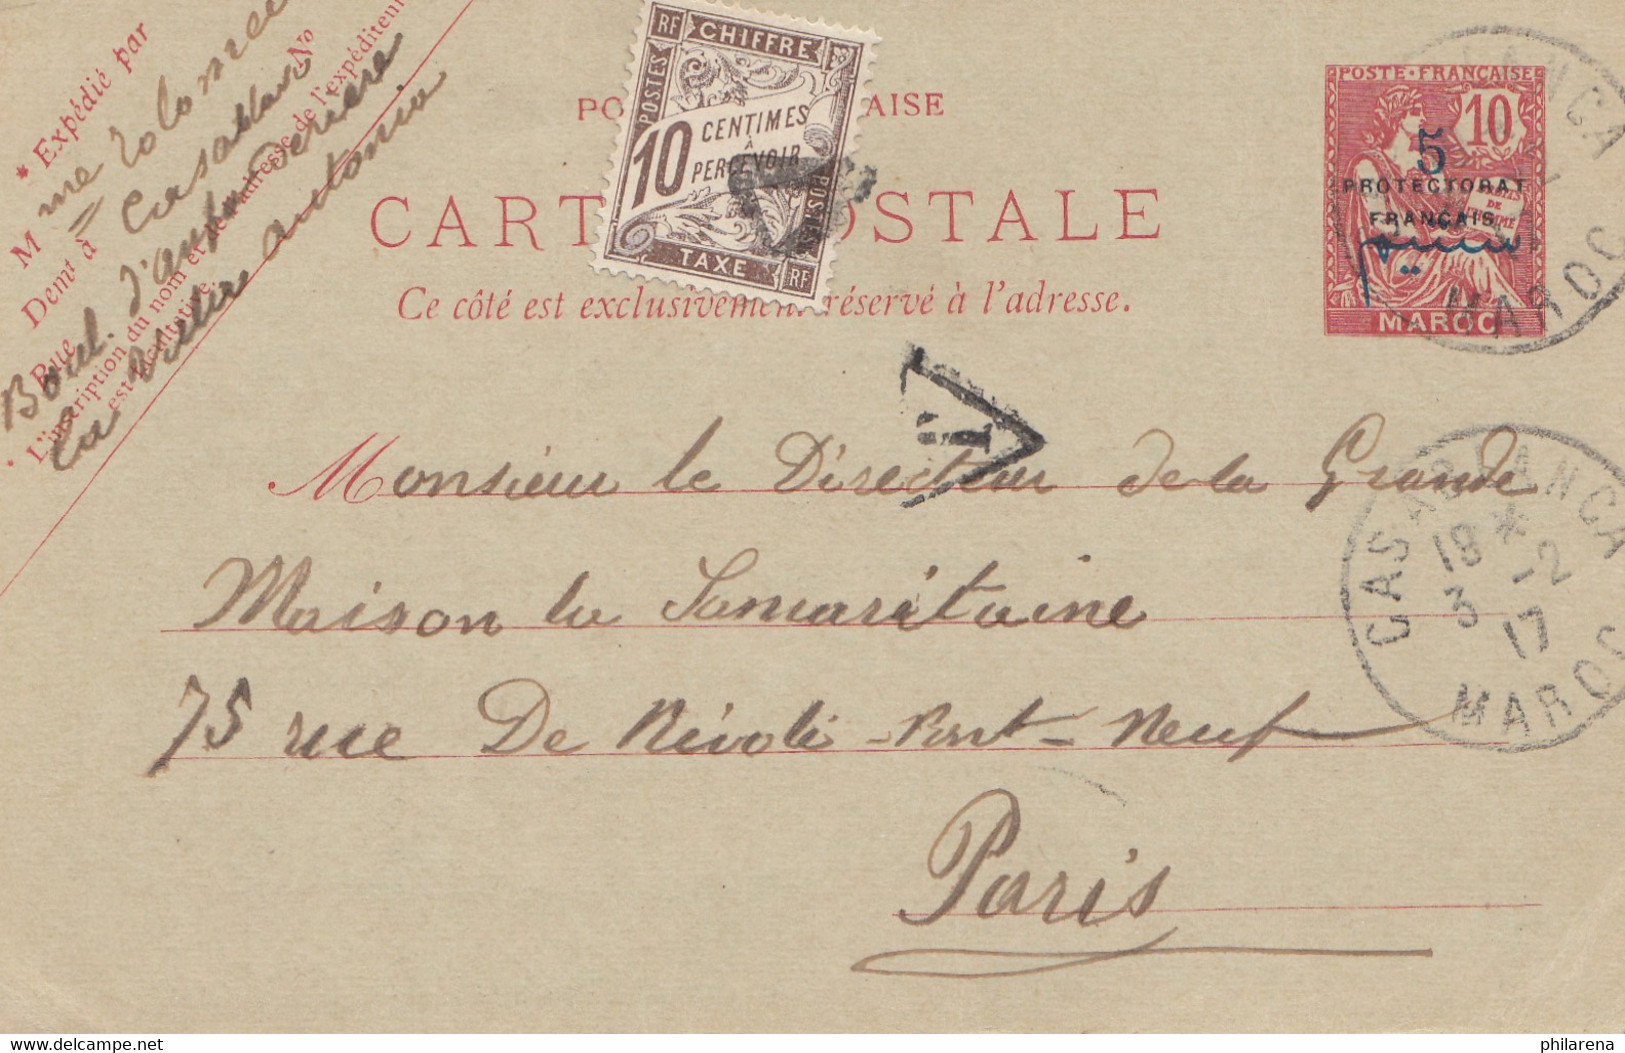 * Expédié par
M me Colonna
Demt à Casablanca No
Rue
Boul. d'
La Villa Antonia
* L'inscription du nom et de l'adresse de l'expéditeur
est facultative.
PO AISE
CART OSTALE
Ce côté est exclusivement réservé à l'adresse.
RF CHIFFRE
POSTES
10 CENTIMES
À
PERCEVOIR
POSTES
TAXE RF
T
POSTE·FRANÇAISE
10
5
PROTECTORAT
FRANÇAIS
MAROC
ANCA
MAROC
Monsieur le Directeur de la Grande
Maison la Samaritaine
75 rue De Rivoli - Pont - Neuf
Paris
CASABLANCA
18 *
3 -2
17
MAROC
www.delcampe.net
philarena